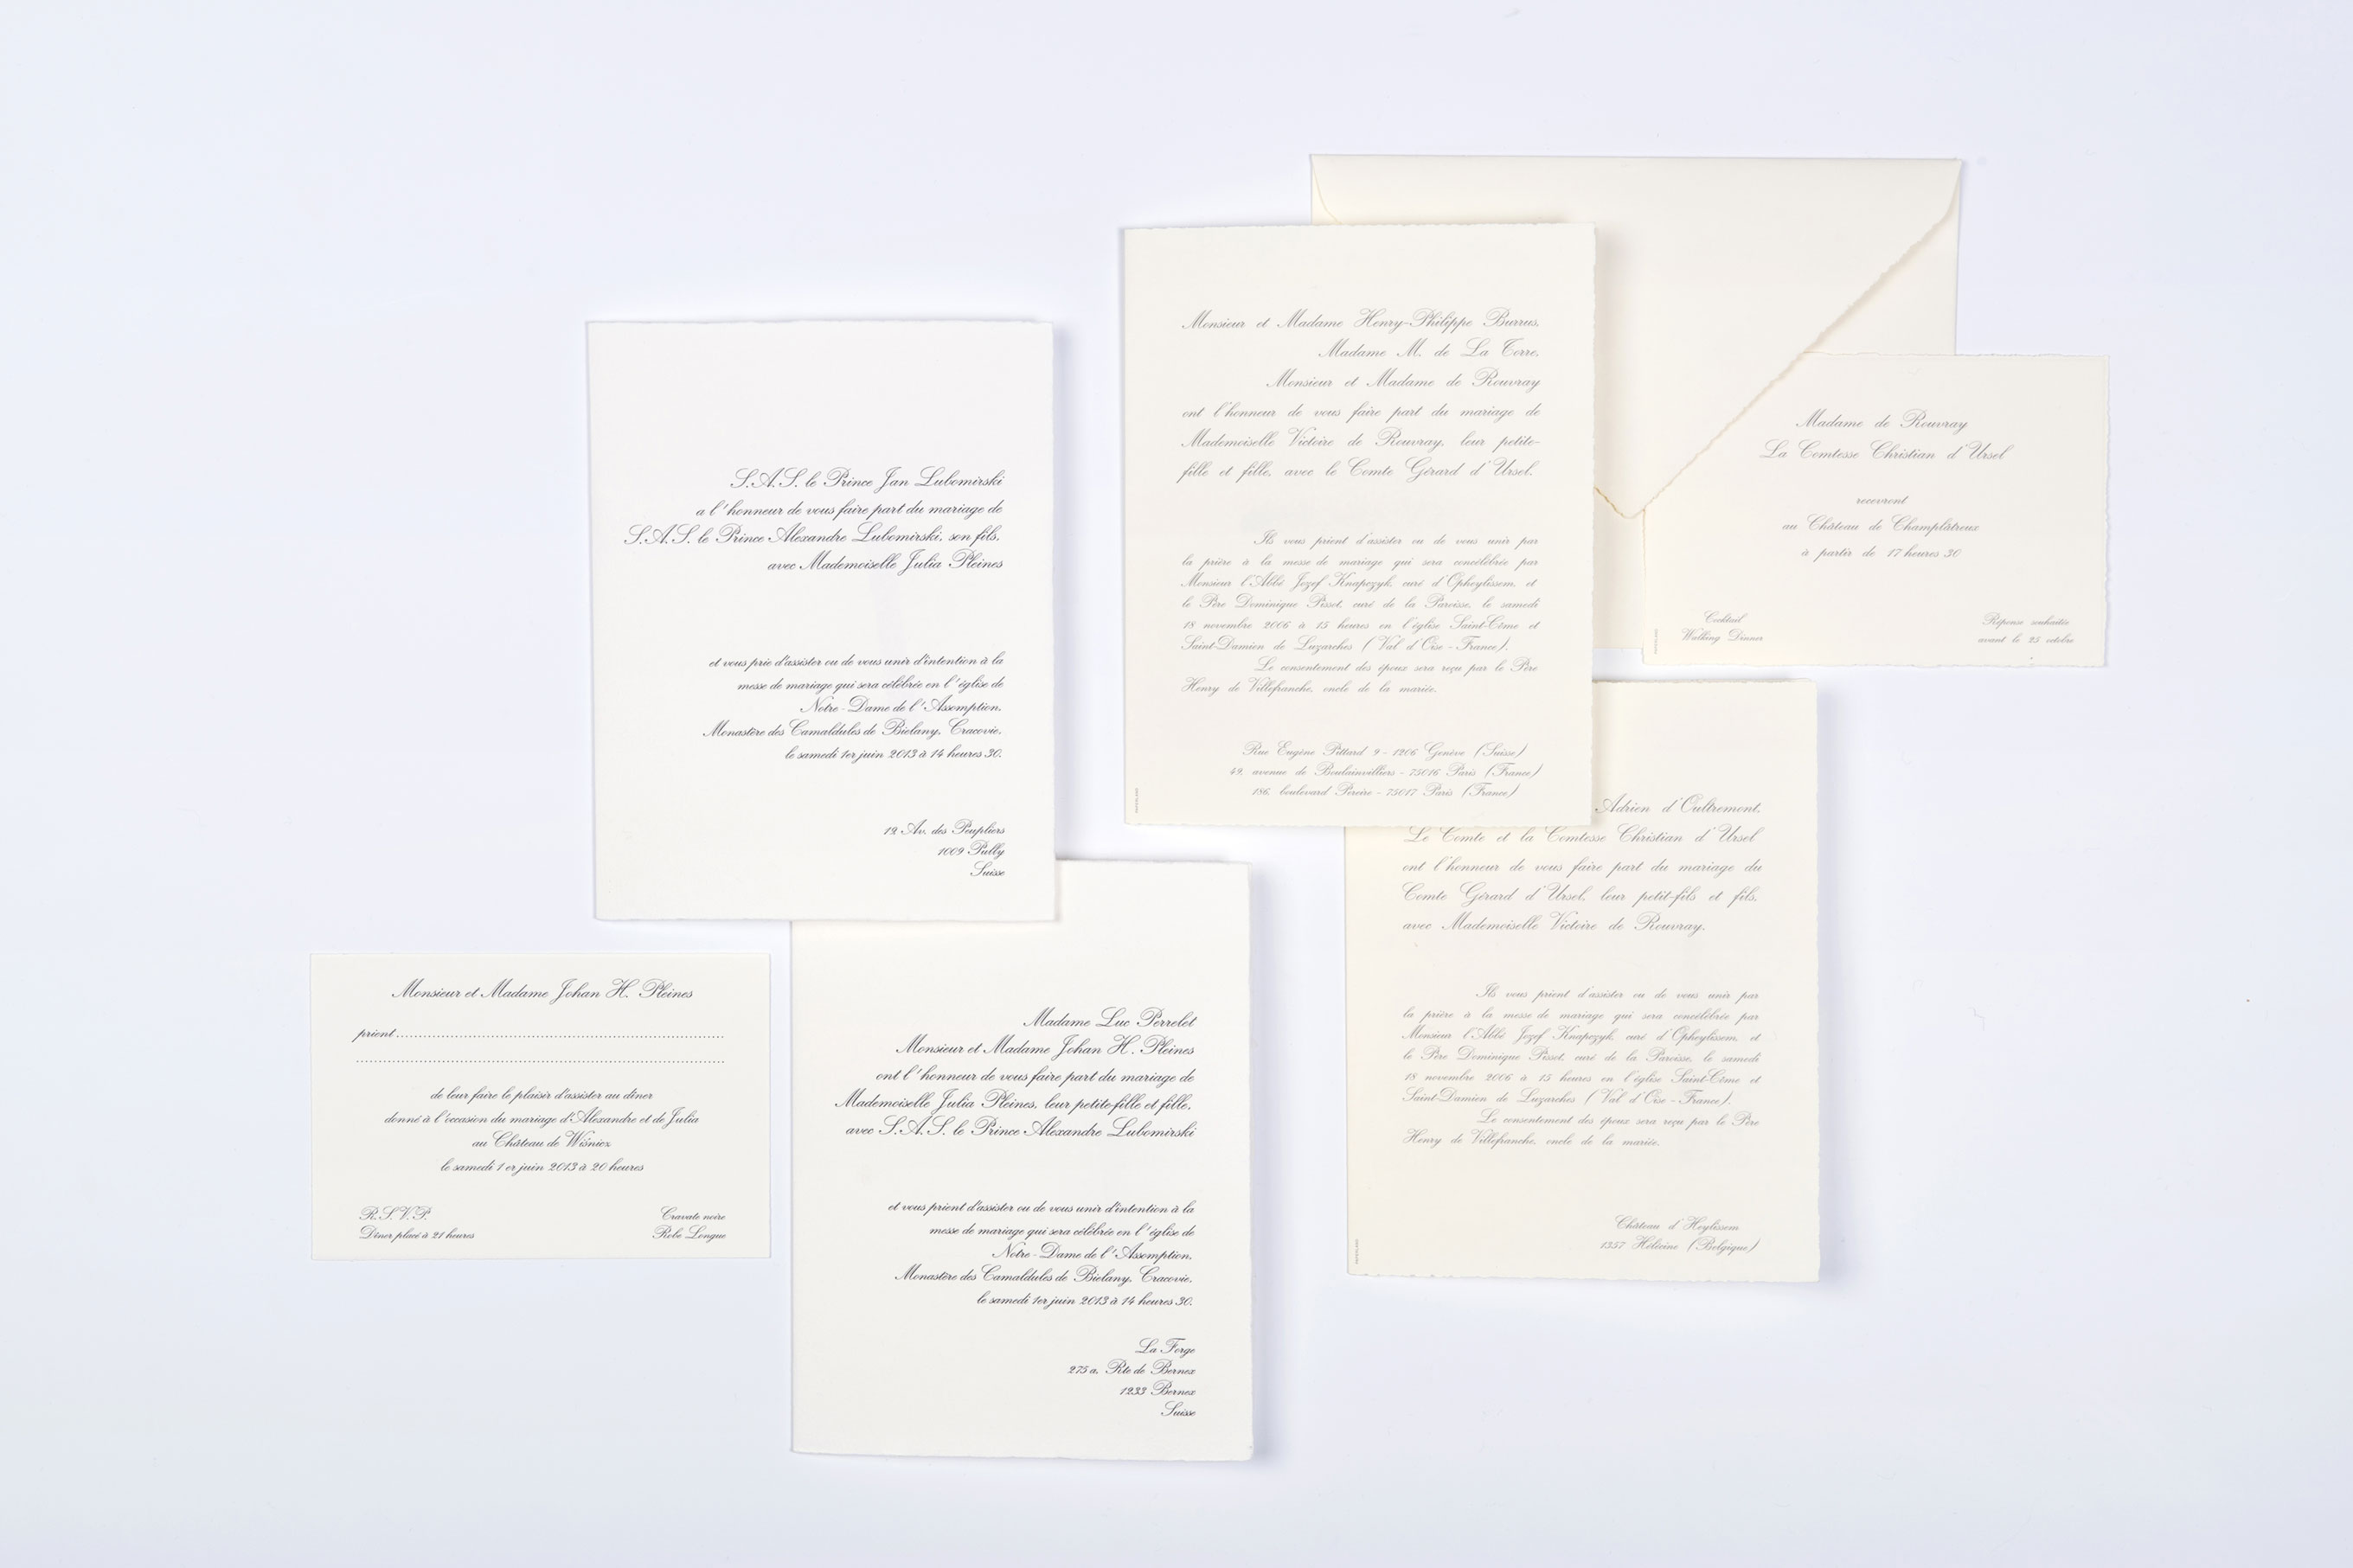 S.A.S. le Prince Jan Lubomirski
a l'honneur de vous faire part du mariage de
S.A.S. le Prince Alexandre Lubomirski, son fils,
avec Mademoiselle Julia Pleines
et vous prie d'assister ou de vous unir d'intention à la
messe de mariage qui sera célébrée en l'église de
Notre-Dame de l'Assomption,
Monastère des Camaldules de Bielany, Cracovie,
le samedi 1er juin 2013 à 14 heures 30.
12 Av. des Peupliers
1009 Pully
Suisse
Monsieur et Madame Henry-Philippe Burrus,
Madame M. de La Torre,
Monsieur et Madame de Rouvray
ont l'honneur de vous faire part du mariage de
Mademoiselle Victoire de Rouvray, leur petite-
fille et fille, avec le Comte Gérard d'Ursel.
Ils vous prient d'assister ou de vous unir par
la prière à la messe de mariage qui sera concélébrée par
Monsieur l'Abbé Jozef Knapczyk, curé d'Opheylissem, et
le Père Dominique Pissot, curé de la Paroisse, le samedi
18 novembre 2006 à 15 heures en l'église Saint-Côme et
Saint-Damien de Luzarches (Val d'Oise - France).
Le consentement des époux sera reçu par le Père
Henry de Villefranche, oncle de la mariée.
Rue Eugène Pittard 9 - 1206 Genève (Suisse)
49, avenue de Boulainvilliers - 75016 Paris (France)
186, boulevard Pereire - 75017 Paris (France)
Madame de Rouvray
La Comtesse Christian d'Ursel
recevront
au Château de Champlâtreux
à partir de 17 heures 30
Cocktail
Walking Dinner
Réponse souhaitée
avant le 25 octobre
Monsieur et Madame Johan H. Pleines
prient
de leur faire le plaisir d'assister au dîner
donné à l'occasion du mariage d'Alexandre et de Julia
au Château de Wisnicz
le samedi 1er juin 2013 à 20 heures
R.S.V.P.
Dîner placé à 21 heures
Cravate noire
Robe Longue
Madame Luc Perrelet
Monsieur et Madame Johan H. Pleines
ont l'honneur de vous faire part du mariage de
Mademoiselle Julia Pleines, leur petite-fille et fille,
avec S.A.S. le Prince Alexandre Lubomirski
et vous prient d'assister ou de vous unir d'intention à la
messe de mariage qui sera célébrée en l'église de
Notre-Dame de l'Assomption,
Monastère des Camaldules de Bielany, Cracovie,
le samedi 1er juin 2013 à 14 heures 30.
La Forge
275 a, Rte de Bernex
1233 Bernex
Suisse
Adrien d'Oultremont,
Le Comte et la Comtesse Christian d'Ursel
ont l'honneur de vous faire part du mariage du
Comte Gérard d'Ursel, leur petit-fils et fils,
avec Mademoiselle Victoire de Rouvray.
Ils vous prient d'assister ou de vous unir par
la prière à la messe de mariage qui sera concélébrée par
Monsieur l'Abbé Jozef Knapczyk, curé d'Opheylissem, et
le Père Dominique Pissot, curé de la Paroisse, le samedi
18 novembre 2006 à 15 heures en l'église Saint-Côme et
Saint-Damien de Luzarches (Val d'Oise - France).
Le consentement des époux sera reçu par le Père
Henry de Villefranche, oncle de la mariée.
Château d'Heylissem
1357 Hélécine (Belgique)